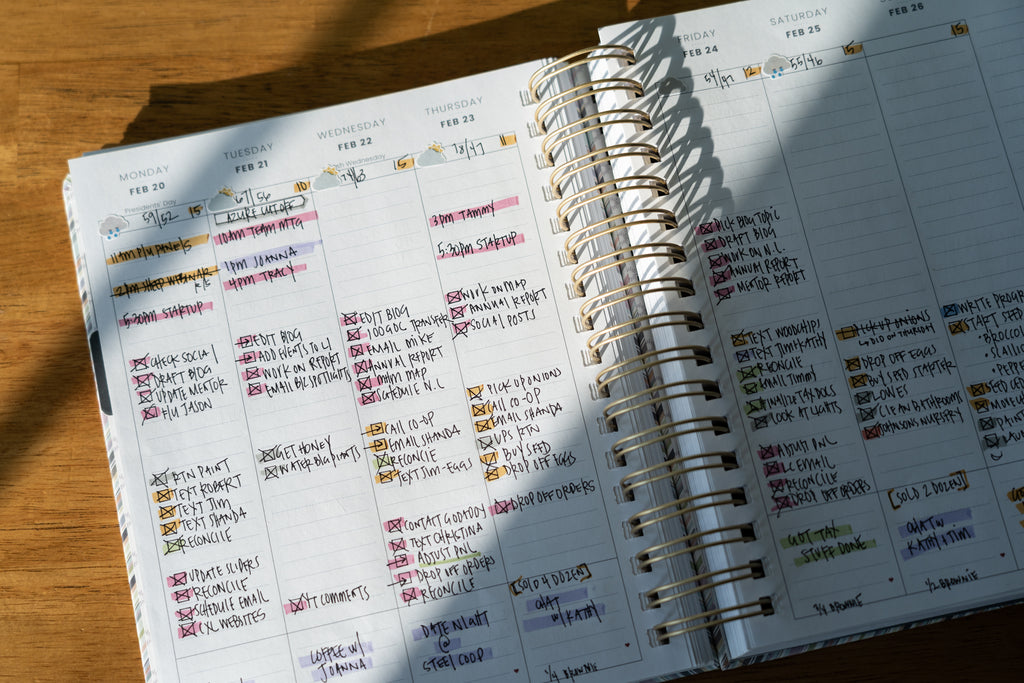 MONDAY
FEB 20
Presidents' Day
59/52 15
11AM PLU PANELS
2PM SHEEP WEBINAR
5:30PM STARTUP
CHECK SOCIAL
DRAFT BLOG
UPDATE MENTOR
F/U JASON
RTN PAINT
TEXT ROBERT
TEXT JIM
TEXT SHANDA
RECONCILE
UPDATE SLIDERS
RECONCILE
SCHEDULE EMAIL
CXL WEBSITES
TUESDAY
FEB 21
67/56 10
AZURE CUTOFF
10AM TEAM MTG
1PM JOANNA
4PM TRACY
EDIT BLOG
ADD EVENTS TO LI
WORK ON REPORT
EMAIL BIZ SPOTLIGHTS
GET HONEY
WATER BLG PLANTS
YT COMMENTS
COFFEE W/
JOANNA
WEDNESDAY
FEB 22
Ash Wednesday
74/63 15
EDIT BLOG
GOOG DC TRANSFER
EMAIL MIKE
ANNUAL REPORT
MHM MAP
SCHEDULE N.L.
CALL CO-OP
EMAIL SHANDA
RECONCILE
TEXT JIM - EGGS
CONTACT GODADDY
TEXT CHRISTINA
ADJUST PNL
DROP OFF ORDERS
RECONCILE
DATE NIGHT
@
STEEL COOP
THURSDAY
FEB 23
78/47 11
3PM TAMMY
5:30PM STARTUP
WORK ON MAP
ANNUAL REPORT
SOCIAL POSTS
PICK UP ONIONS
CALL CO-OP
EMAIL SHANDA
UPS RTN
BUY SEED
DROP OFF EGGS
DROP OFF ORDERS
SOLD 4 DOZEN
CHAT
W/ KATHY
1/4 BROWNIE
FRIDAY
FEB 24
54/47 12
PICK BLOG TOPIC
DRAFT BLOG
WORK ON N.L.
ANNUAL REPORT
MENTOR REPORT
TEXT WOODCHIPS
TEXT JIM + KATHY
RECONCILE
EMAIL JIMMY
FINALIZE TAX DOCS
LOOK AT LIGHTS
ADJUST PNL
LC EMAIL
RECONCILE
DROP OFF ORDERS
GOT TAX
STUFF DONE
3/4 BROWNIE
SATURDAY
FEB 25
55/46 15
PICK UP ONIONS
DROP OFF EGGS
BUY SEED STARTER
LOWES
CLEAN BATHROOMS
JOHNSONS NURSERY
SOLD 2 DOZEN
CHAT W/
KATHY + JIM
1/2 BROWNIE
FEB 26
15
WRITE
START SEED